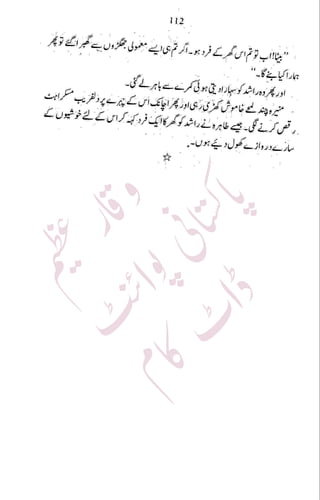 112
"بیٹا! اب تو تم اس گھر کے فرد ہو۔ اگر تم ہی ایسے معمولی جھگڑوں سے گھبرا گئے تو پھر
ہمارا کیا بنے گا۔"
اور پھر وہ راشد کو سہارا دیتی ہوئی کمرے سے باہر لے گئی۔
منیرہ چند لمحے خاموش کھڑی رہی اور پھر اچانک اس کے چہرے پر دلفریب مسکراہٹ
رقص کرنے لگی۔ جیسے طاہرہ نے راشد کو گھر کا ایک فرد کہہ کر اس کے لئے خوشیوں کے
سارے دروازے کھول دیئے ہوں۔
☆
وقار عظیم
پاکستانی پوائنٹ
ڈاٹ کام